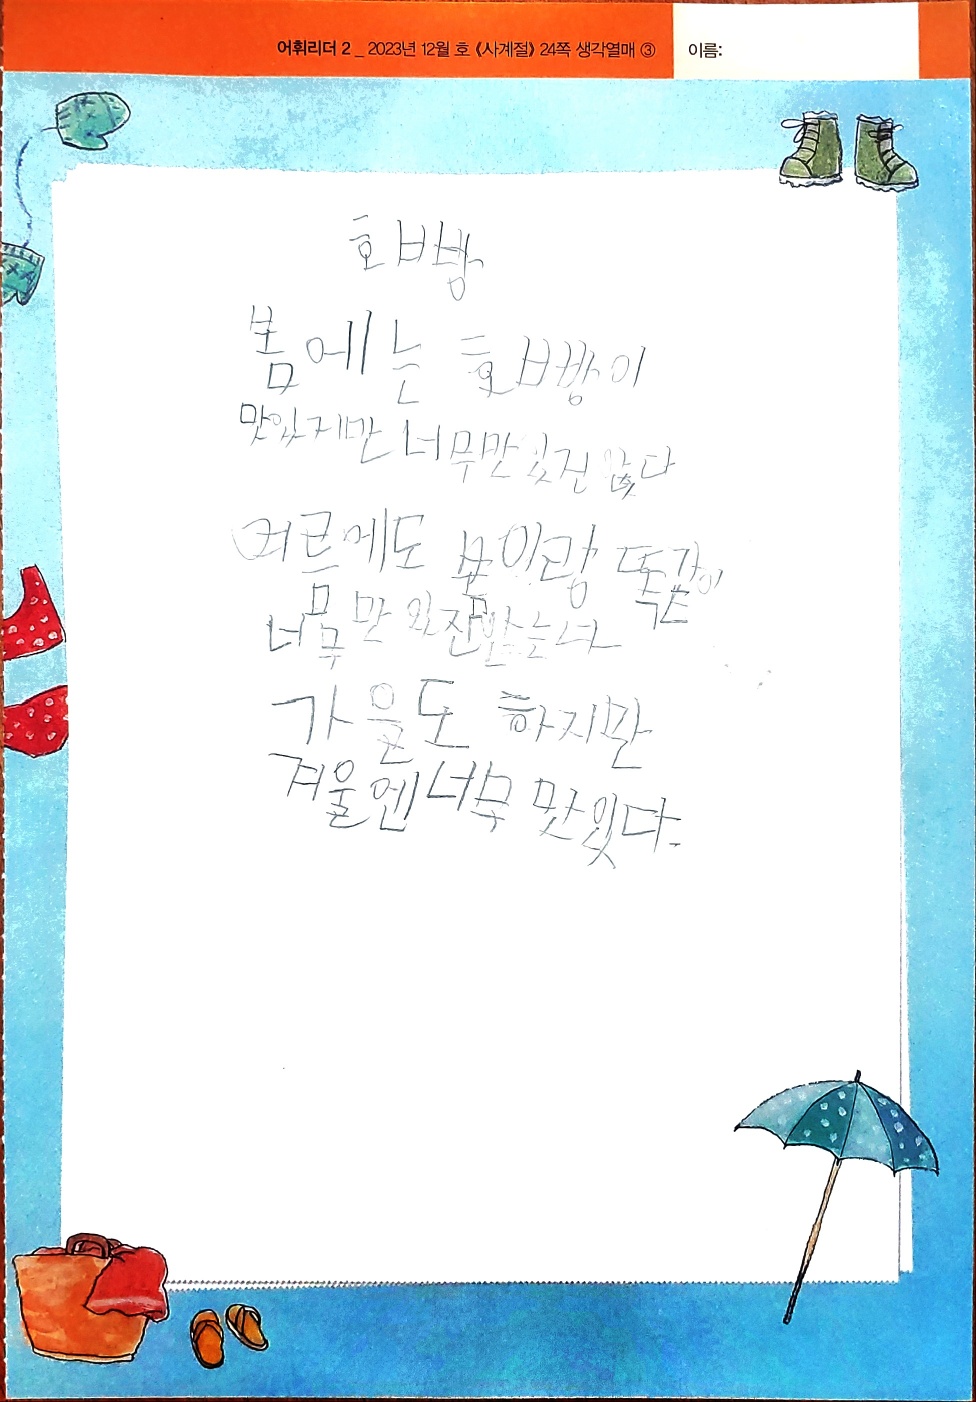 어휘리더 2 _ 2023년 12월 호 《사계절》 24쪽 생각열매 ③ 이름:
호빵
봄에는 호빵이
맛있지만 너무 맏있진 않다
여름에도 봄이랑 똑같이
너무 맏있진
가을도 하지만
겨울엔 너무 맛있다.